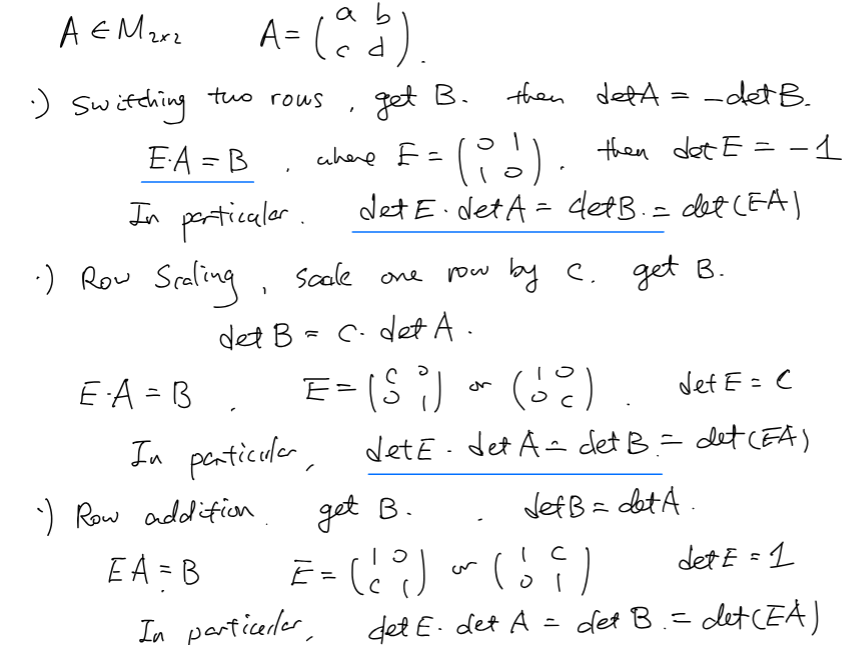 A ∈ M₂ₓ₂ A = (a b
c d).
·) Switching two rows, get B. then det A = -det B.
E·A = B, where E = (0 1
1 0). then det E = -1
In particular. det E · det A = det B. = det(EA)
·) Row Scaling, scale one row by c. get B.
det B = c· det A.
E·A = B, E = (c 0
0 1) or (1 0
0 c). det E = c
In particular, det E · det A = det B. = det(EA)
·) Row addition. get B. . det B = det A.
EA = B E = (1 0
c 1) or (1 c
0 1) det E = 1
In particular, det E. det A = det B. = det(EA)